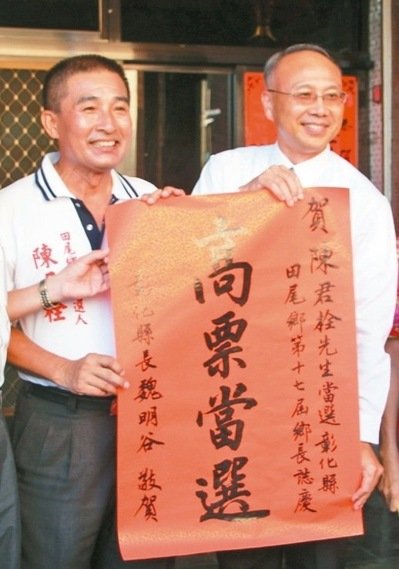 賀陳君栓先生當選彰化縣
田尾鄉第十七屆鄉長誌慶
高票當選
彰化縣長魏明谷敬賀
田尾
選人
陳
栓